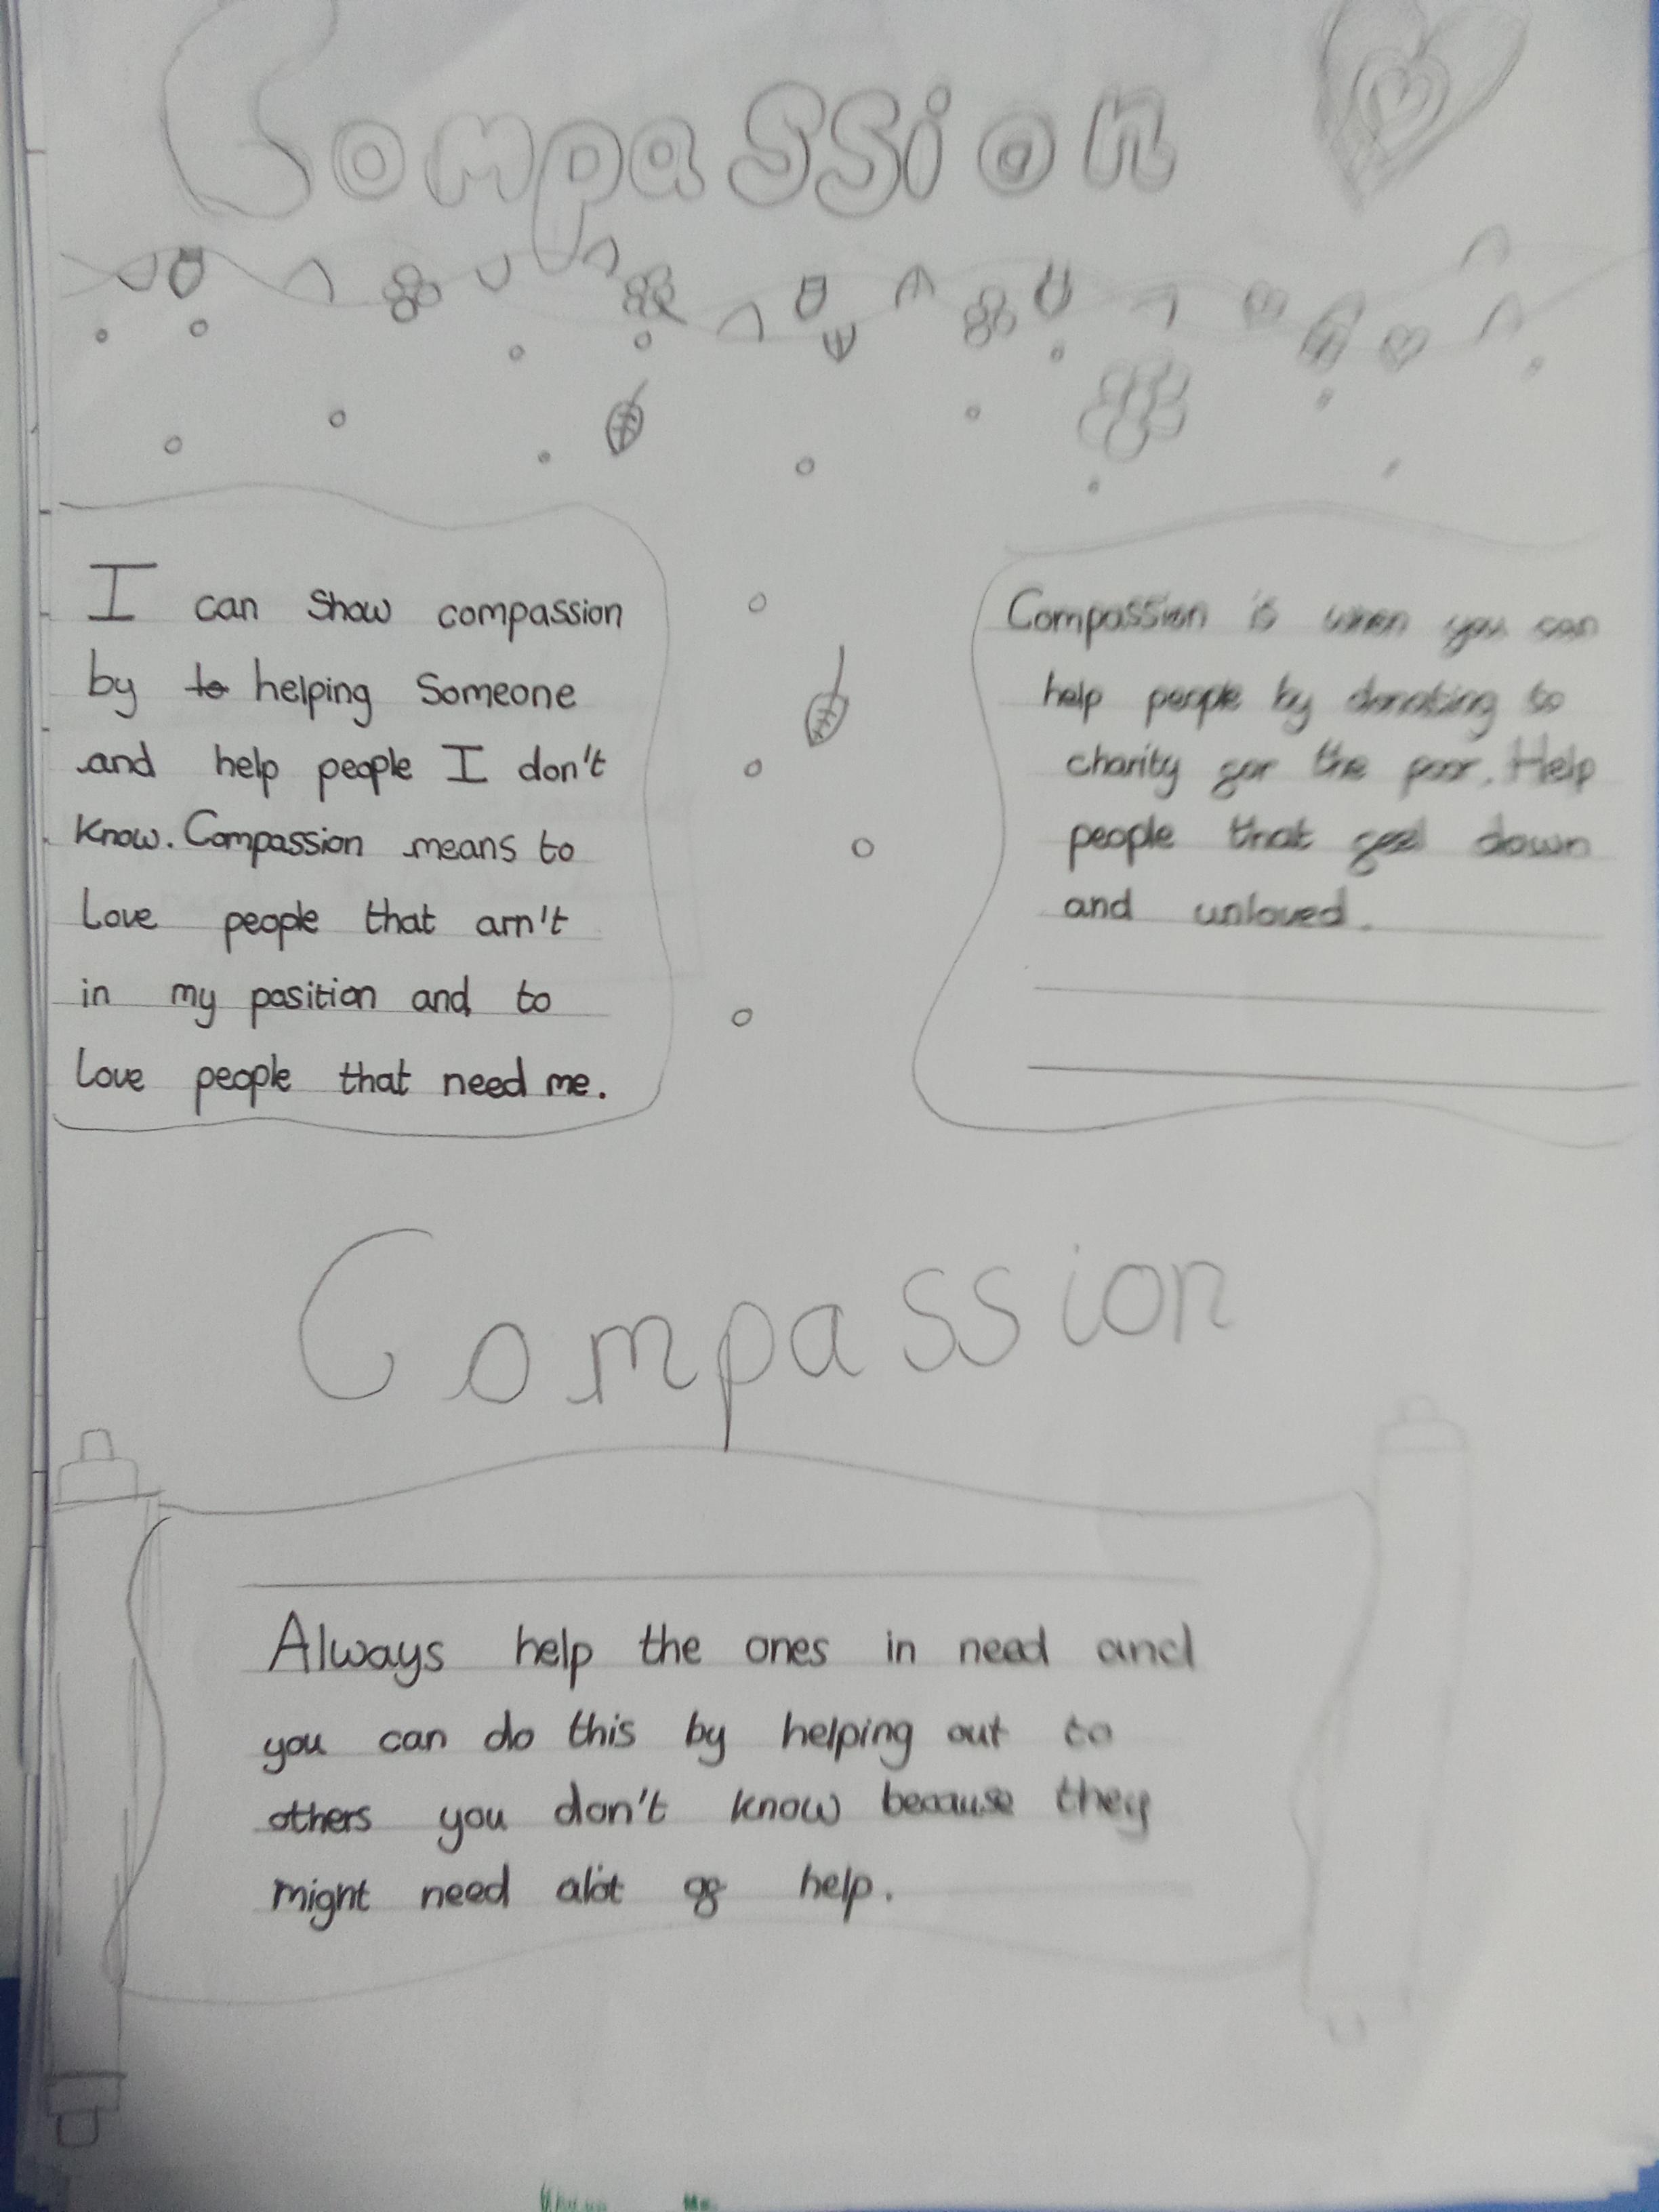 Compassion
I can show compassion
by to helping Someone
and help people I don't
know. Compassion means to
love people that arn't
in my position and to
love people that need me.
Compassion is when you can
help people by donating to
charity for the poor. Help
people that feel down
and unloved.
Compassion
Always help the ones in need and
you can do this by helping out to
others you don't know because they
might need alot of help.